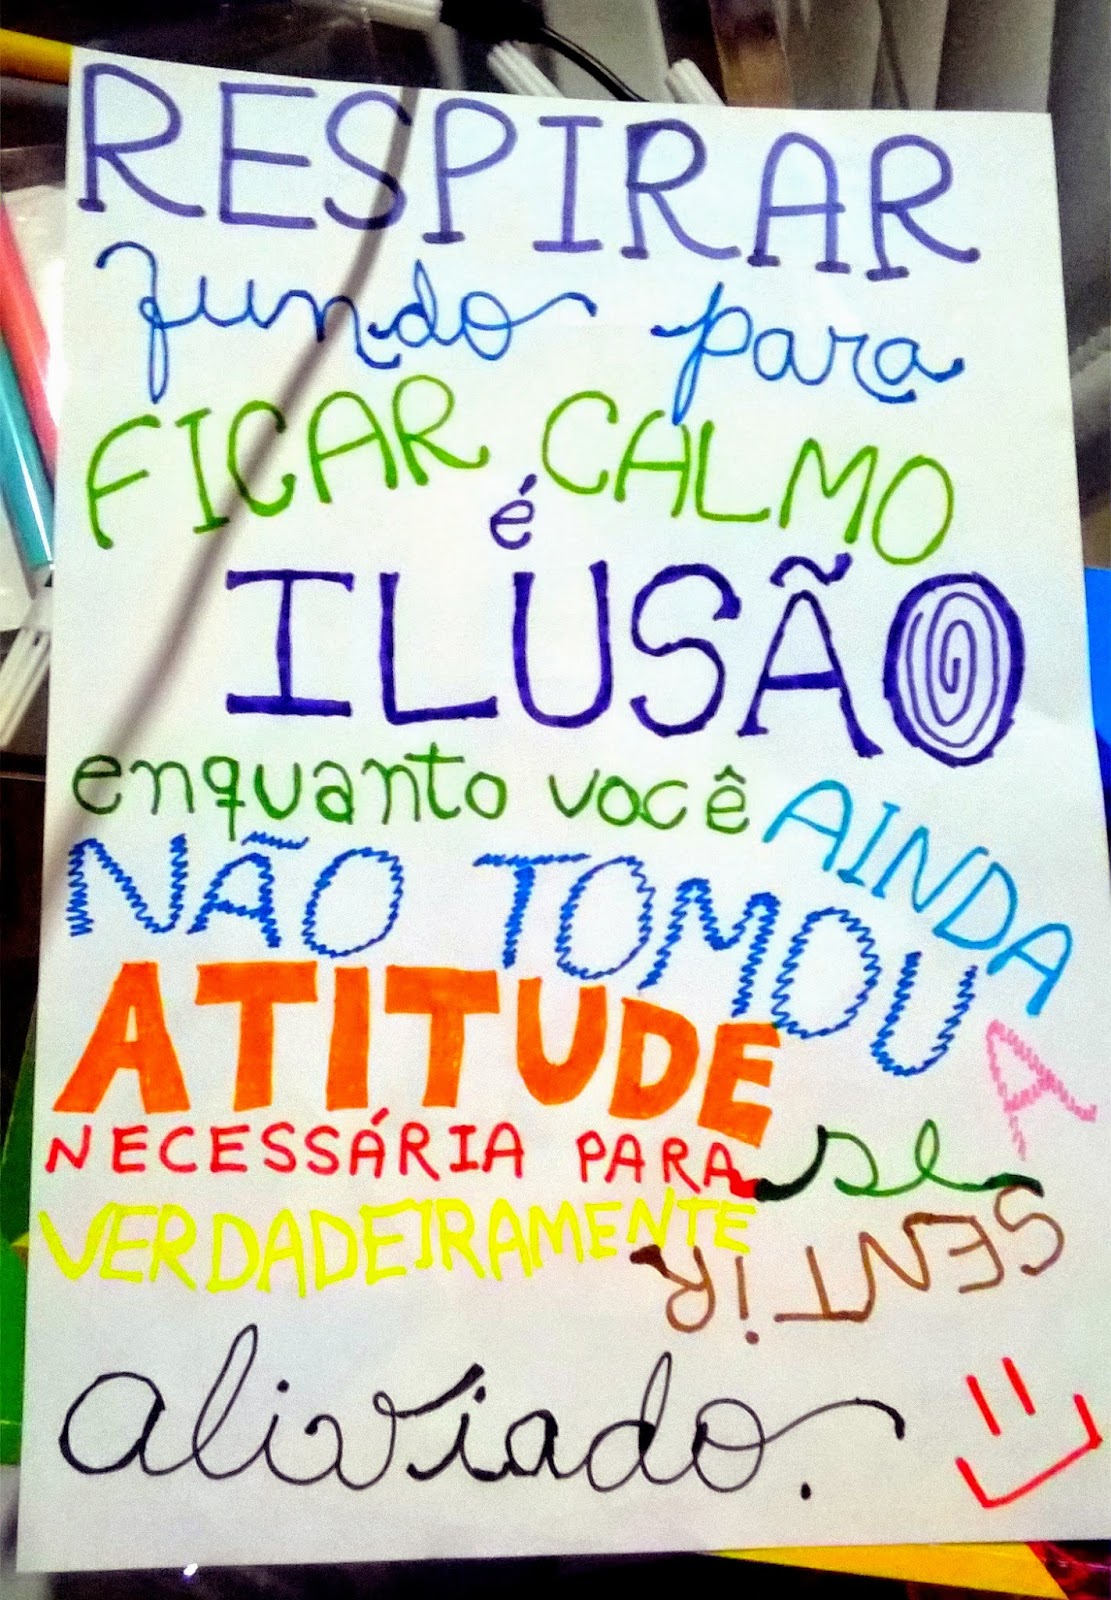 RESPIRAR
fundo para
FICAR CALMO
é
ILUSÃO
enquanto você AINDA
NÃO TOMOU A
ATITUDE
NECESSÁRIA PARA se
VERDADEIRAMENTE
SENTiR
aliviado.